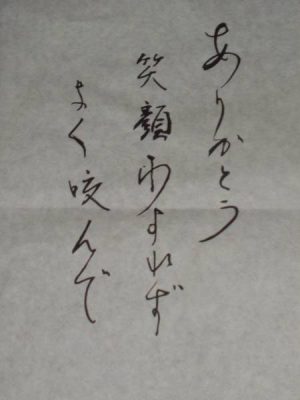 ありがとう
笑顔わすれず
よく咬んで